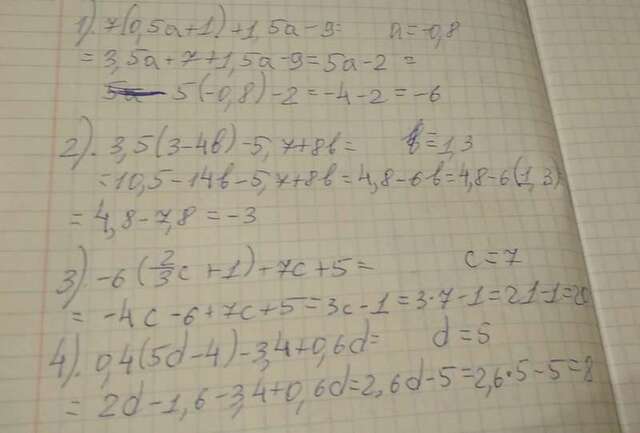 1) 7(0,5a+1)+1,5a-9= a=-0,8
= 3,5a+7+1,5a-9=5a-2 =
5(-0,8)-2=-4-2=-6
2). 3,5(3-4b)-5,7+8b= b=1,3
=10,5-14b-5,7+8b=4,8-6b=4,8-6(1,3)
= 4,8-7,8=-3
3) -6(2/3c+1)+7c+5= c=7
= -4c-6+7c+5=3c-1=3·7-1=21-1=20
4). 0,4(5d-4)-3,4+0,6d= d=5
= 2d-1,6-3,4+0,6d=2,6d-5=2,6·5-5=8